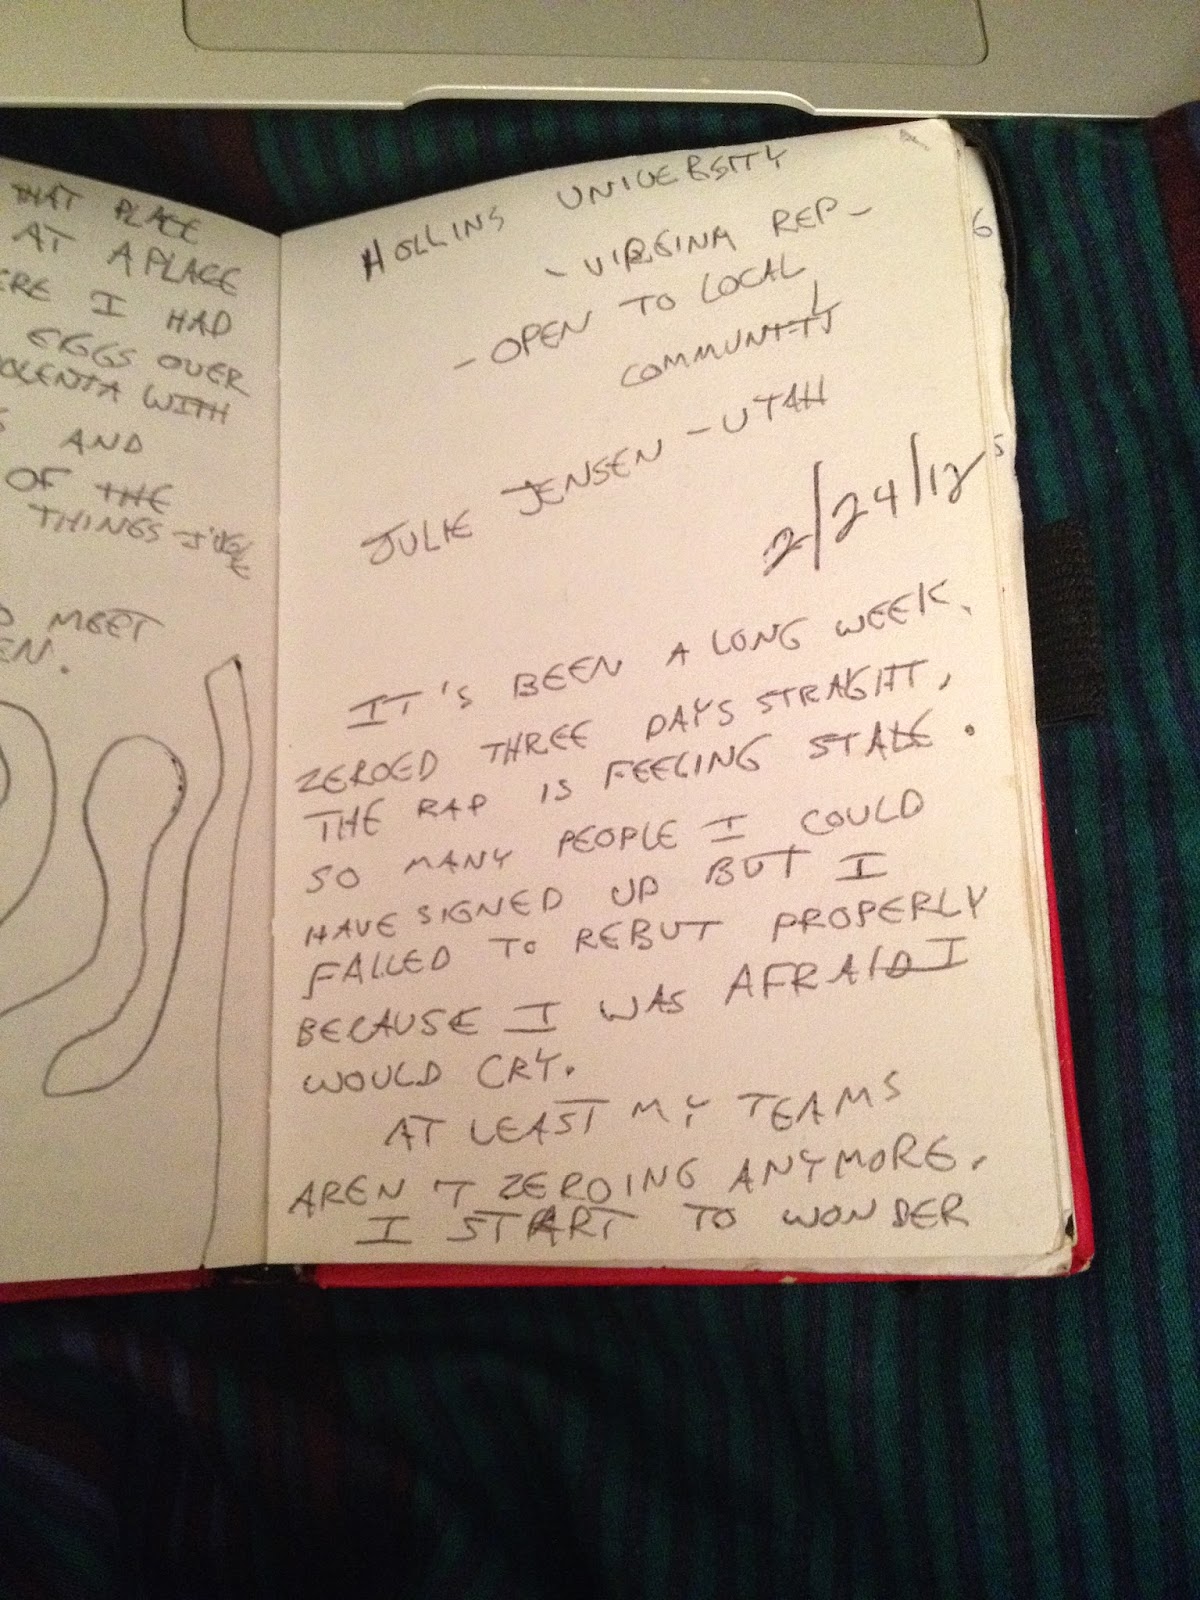 THAT PLACE
AT A PLACE
ERE I HAD
EGGS OVER
OLENTA WITH
S AND
OF THE
THINGS I'VE
MEET
EN.
HOLLINS UNIVERSITY
- VIRGINA REP -
- OPEN TO LOCAL
COMMUNITY
JULIE JENSEN - UTAH
2/24/12
IT'S BEEN A LONG WEEK.
ZEROED THREE DAYS STRAIGHT,
THE RAP IS FEELING STALE.
SO MANY PEOPLE I COULD
HAVE SIGNED UP BUT I
FAILED TO REBUT PROPERLY
BECAUSE I WAS AFRAID I
WOULD CRY.
AT LEAST MY TEAMS
AREN'T ZEROING ANYMORE.
I START TO WONDER
6
5